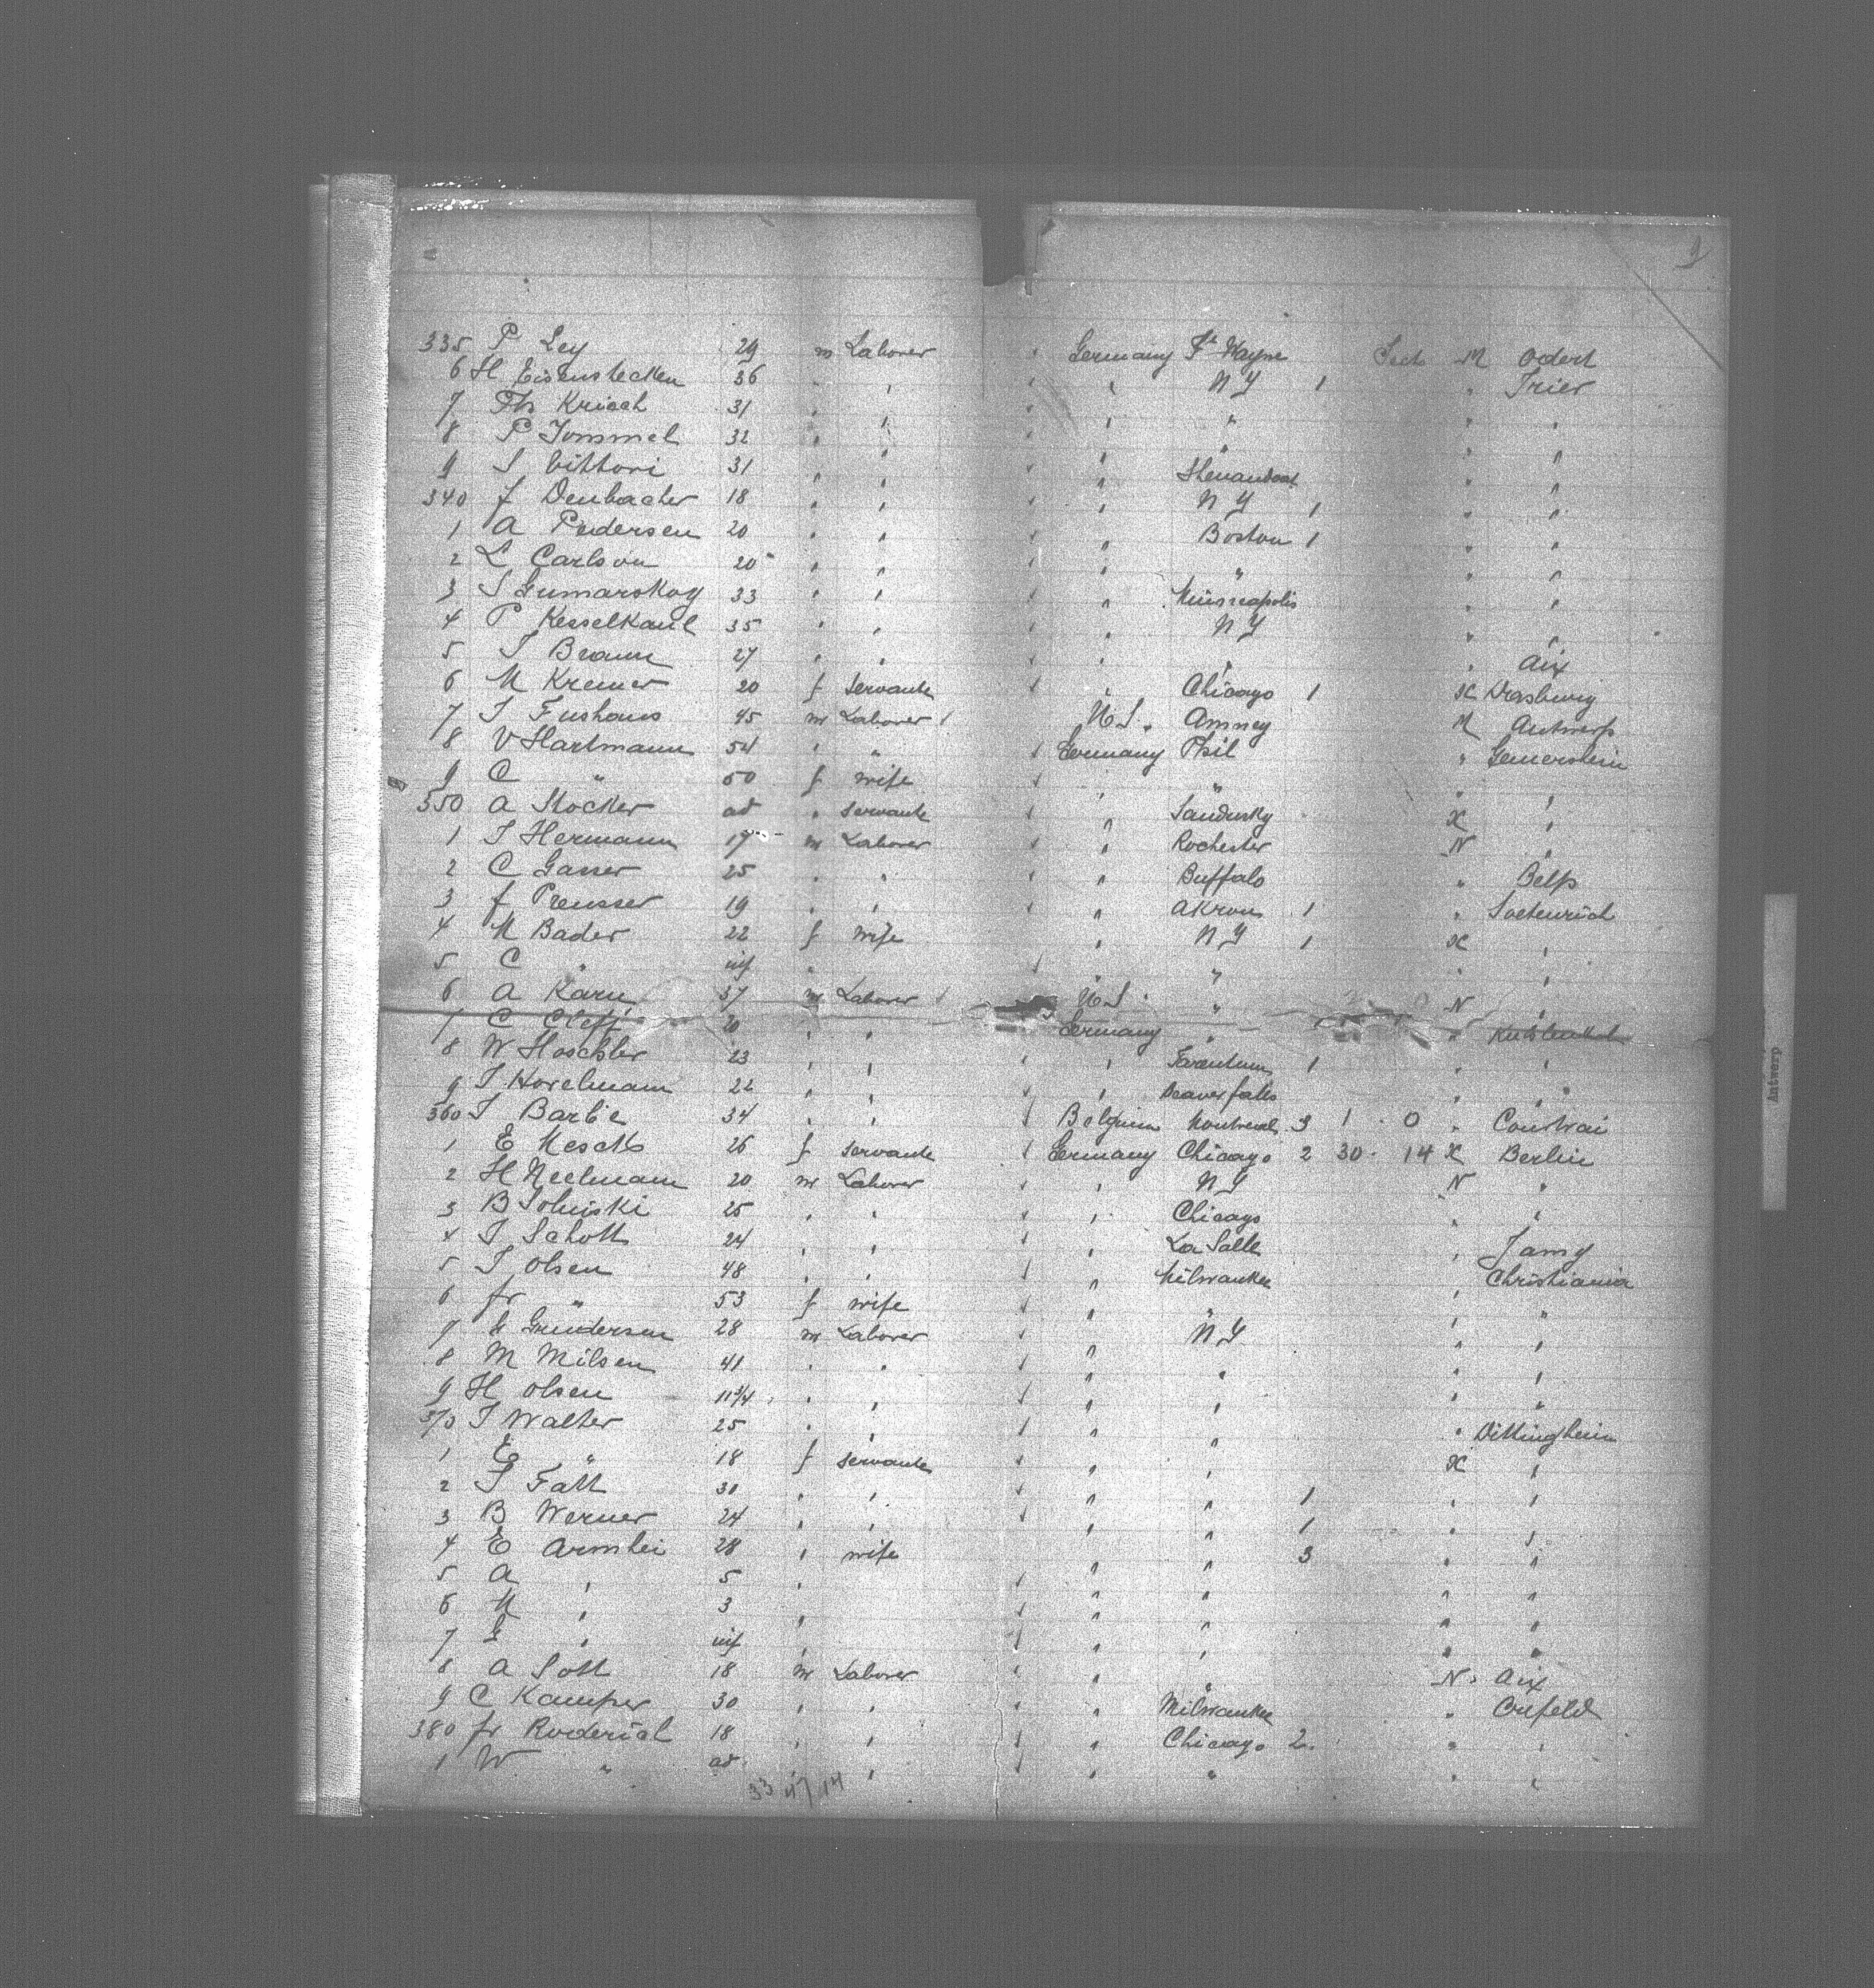 335 P Ley 29 m Laborer Germany Ft Wayne Sect M Odert
6 H Eisenstecken 36 " " " N Y 1 " Trier
7 Th Kriach 31 " " " " " "
8 P Jommel 32 " " " " " "
9 S Vittori 31 " " " Shenandoah " "
340 f Denbacher 18 " " " N Y 1 " "
1 A Pedersen 20 " " " Boston 1 " "
2 L Carlson 20 " " " " " "
3 S Gumarskog 33 " " " Minneapolis " "
4 P Kesselkaul 35 " " " N Y " "
5 J Braun 27 " " " " " Aix
6 M Kremer 20 f servante " Chicago 1
7 J Fushaus 45 m Laborer 1 U S. M Antwerp
8 V Hartmann 54 " " Germany Phil "
9 C " 50 f wife " " " "
350 A Stocker ad " servante " Sandusky "
1 J Hermann 17 m Laborer " Rochester N "
2 C Gasser 25 " " " Buffalo " Belp
3 f Preusser 19 " " " Akron 1 " Soetenrich
4 M Bader 22 f wife " N Y 1 "
5 C " inf " " " " "
6 A Karu 37 m Laborer 1 U S. " N "
7 C Cleff 20 " " Germany " "
8 W Hoschler 23 " " " Tarentum 1 " "
9 J Horelmann 22 " " " Beaver falls " "
360 J Barbie 34 " " Belgium Montreal 3 1 . 0 " Courtrai
1 E Mesch 26 f servante Germany Chicago 2 30 . 14 Berlin
2 H Neelmann 20 m Laborer " N Y N "
3 B Solniski 25 " " " Chicago " "
4 J Schott 24 " " " La Salle " Jamy
5 J Olsen 48 " " " Milwaukee Christiania
6 fr " 53 f wife " " " "
7 Gundersen 28 m Laborer " N Y " "
8 M Milsen 41 " " " " " "
9 H Olsen 11 3/4 " " " " " "
370 J Walter 25 " " " " " Dittingheim
1 E " 18 f servante " " "
2 S Fatt 30 " " " " 1 " "
3 B Werner 24 " " " " 1 " "
4 E Armhei 28 " wife " " 3 " "
5 A " 5 " " " " "
6 M " 3 " " " " "
7 " inf " " " " "
8 A Sott 18 m Laborer " " N. Aix
9 C Kamper 30 " " " Milwaukee " Crefeld
380 fr Roderich 18 " " " Chicago 2. " "
1 W " ad " " " " " "
33 47 14
Antwerp